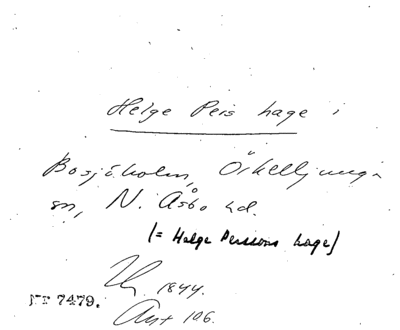 Helge Pers hage i
Bosjöholm, Örkelljunga
sn, N. Åsbo hd.
(= Helge Perssons hage)
1844.
NT 7479.
Ant 106.